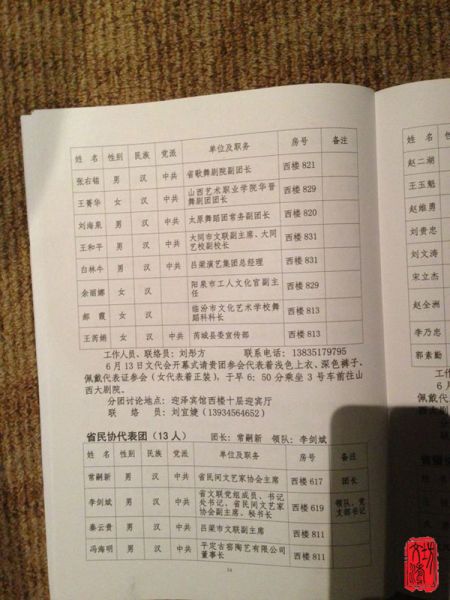 姓 名 性别 民族 党派 单位及职务 房号 备注
张右铭 男 汉 中共 省歌舞剧院副团长 西楼 821
王菁华 女 汉 中共 山西艺术职业学院华晋舞剧团团长 西楼 829
刘海泉 男 汉 中共 太原舞蹈团常务副团长 西楼 820
王和平 男 汉 中共 大同市文联副主席、大同艺校副校长 西楼 831
白林牛 男 汉 中共 吕梁演艺集团总经理 西楼 831
余丽娜 女 汉 阳泉市工人文化宫副主任 西楼 829
郝 霞 女 汉 临汾市文化艺术学校舞蹈科科长 西楼 813
王芮娟 女 汉 中共 芮城县委宣传部 西楼 813
工作人员、联络员:刘彤方 联系电话:13835179795
6 月 13 日文代会开幕式请贵团参会代表着浅色上衣、深色裤子,
佩戴代表证参会(女代表着正装),于早 6:50 分乘坐 3 号车前往山
西大剧院。
分团讨论地点:迎泽宾馆西楼十层迎宾厅
联 络 员:刘宜婕(13934564652)
省民协代表团(13 人) 团长:常嗣新 领队:李剑斌
姓 名 性别 民族 党派 单位及职务 房号 备注
常嗣新 男 汉 中共 省民间文艺家协会主席 西楼 617 团长
李剑斌 男 汉 中共 省文联党组成员、书记处书记、省民间文艺家协会副主席、秘书长 西楼 619 领队、党支部书记
秦云贵 男 汉 中共 吕梁市文联副主席 西楼 811
冯海明 男 汉 中共 平定古窑陶艺有限公司董事长 西楼 811
赵二湖
王玉魁
赵维勇
刘贵忠
刘文涛
宋立杰
赵全洲
李乃忠
郭素勤